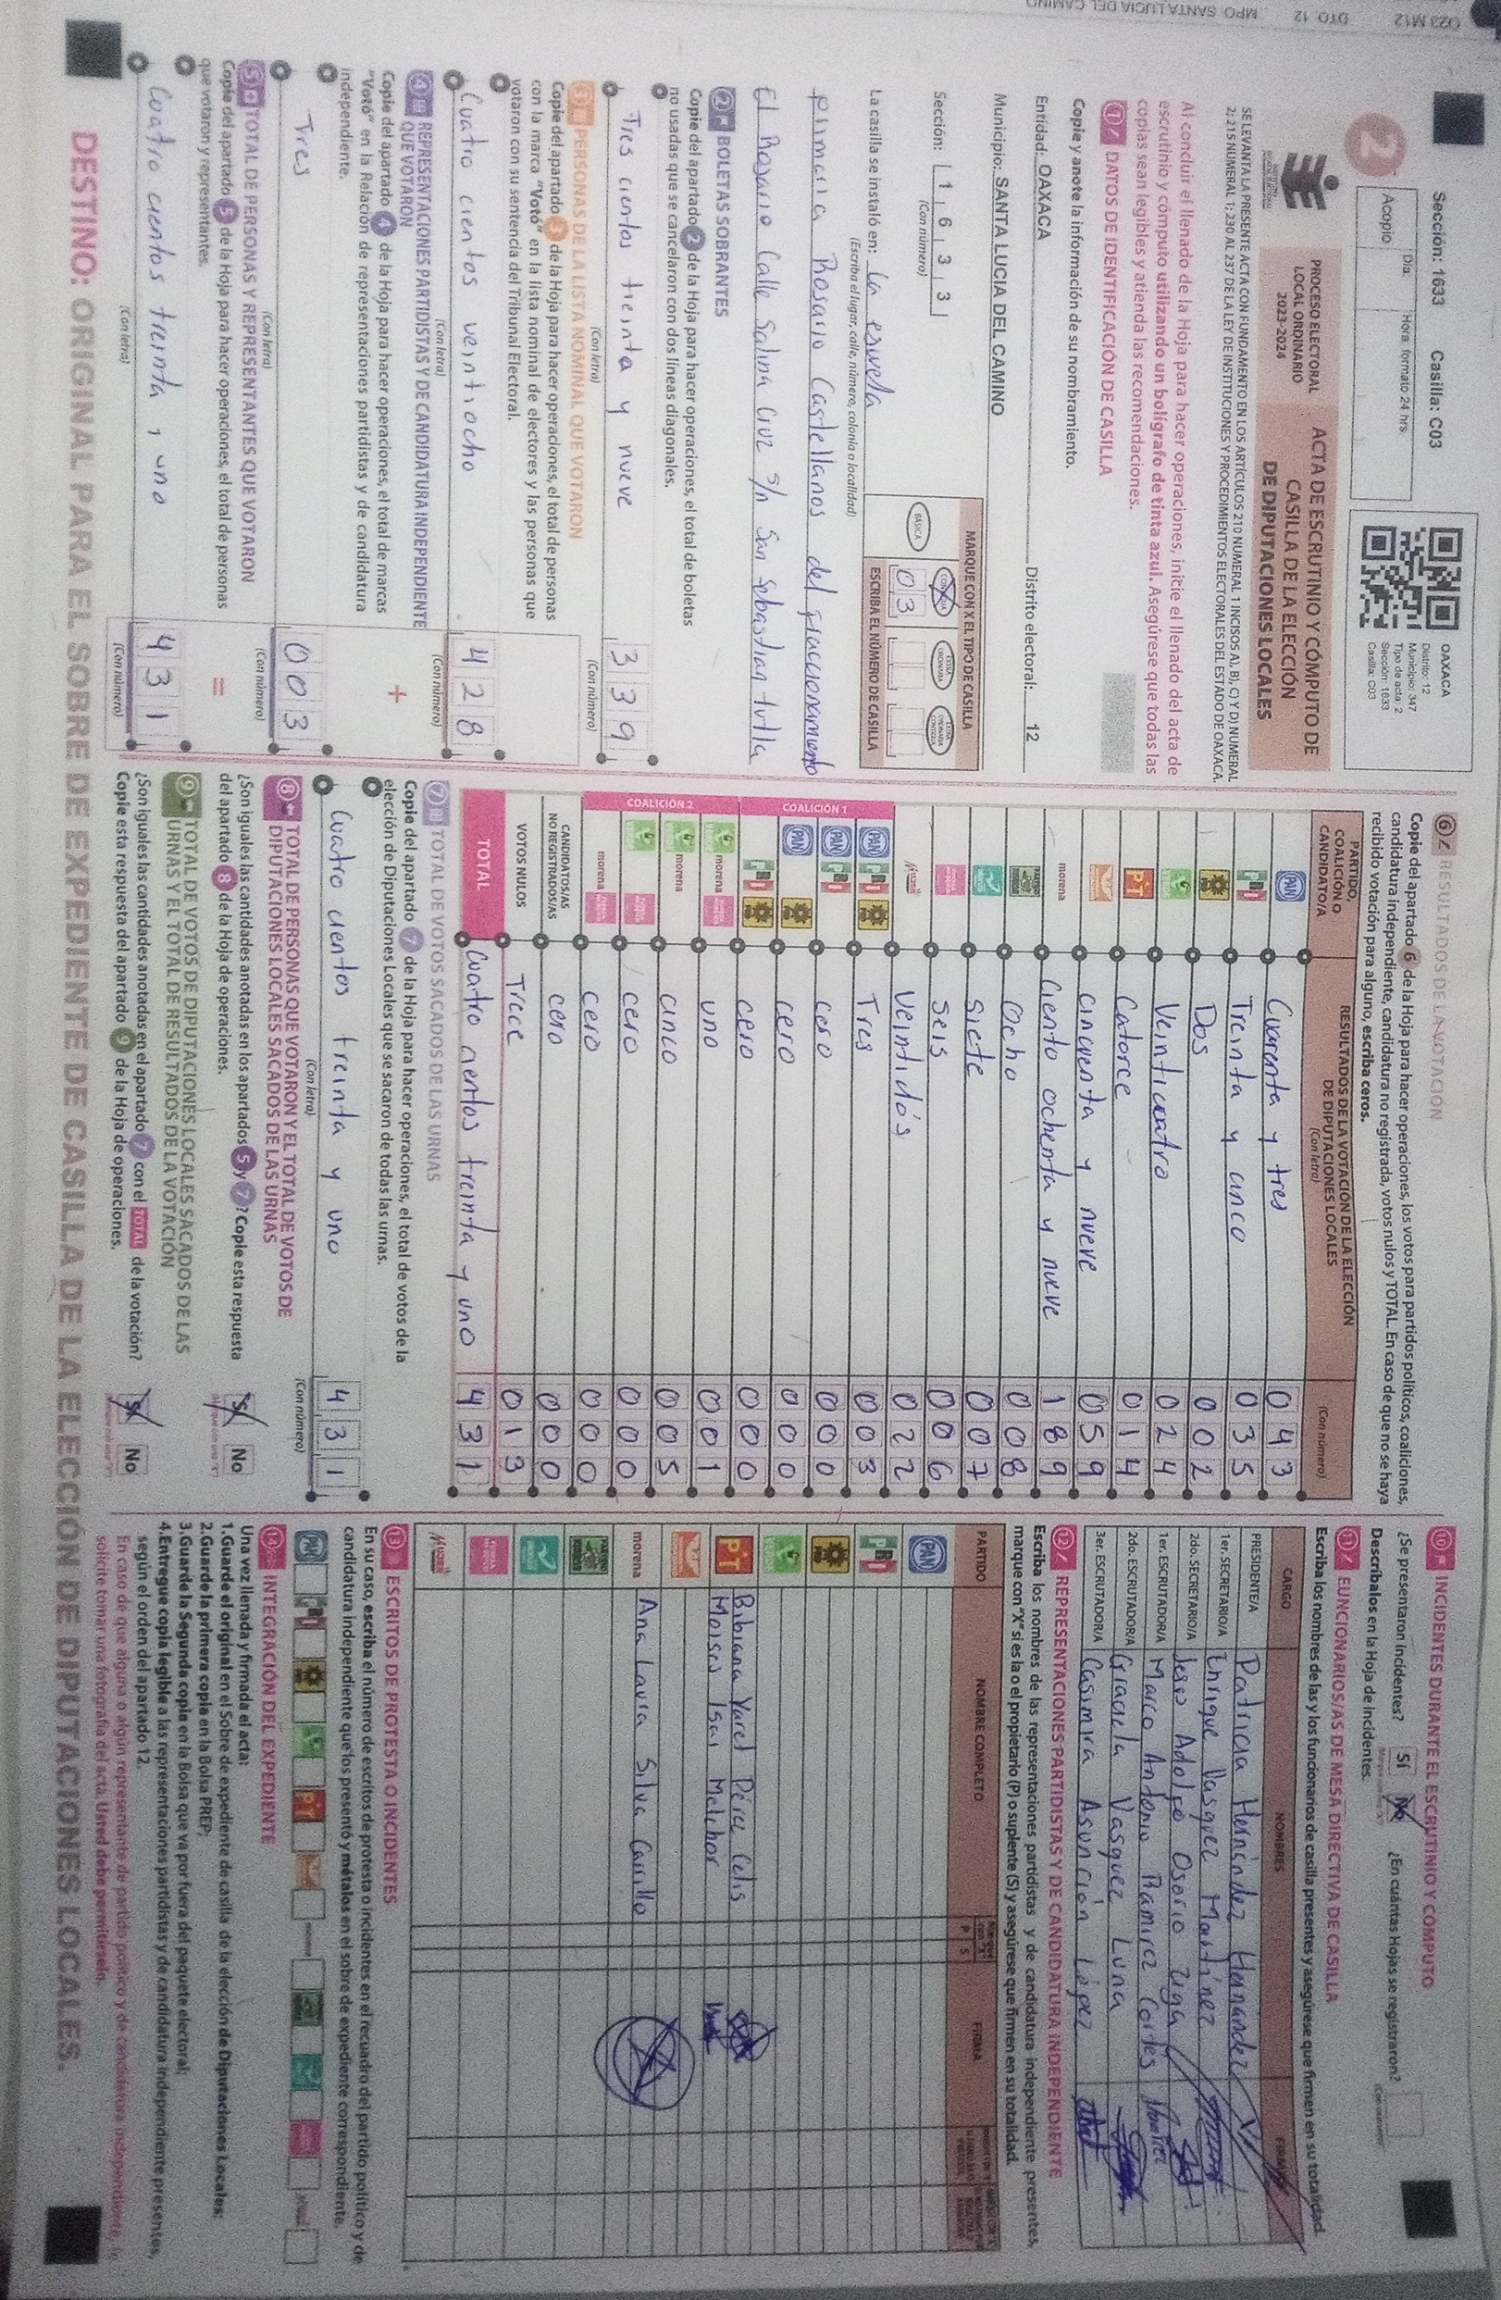 Sección: 1633 Casilla: C03
2
Acopio
Día:
Hora: formato 24 hrs
OAXACA
Distrito: 12
Municipio: 347
Tipo de acta: 2
Sección: 1633
Casilla: C03
PROCESO ELECTORAL
LOCAL ORDINARIO
2023-2024
ACTA DE ESCRUTINIO Y CÓMPUTO DE
CASILLA DE LA ELECCIÓN
DE DIPUTACIONES LOCALES
SE LEVANTA LA PRESENTE ACTA CON FUNDAMENTO EN LOS ARTÍCULOS 210 NUMERAL 1 INCISOS A), B), C) Y D) NUMERAL
2; 215 NUMERAL 1; 230 AL 237 DE LA LEY DE INSTITUCIONES Y PROCEDIMIENTOS ELECTORALES DEL ESTADO DE OAXACA.
Al concluir el llenado de la Hoja para hacer operaciones, inicie el llenado del acta de
escrutinio y cómputo utilizando un bolígrafo de tinta azul. Asegúrese que todas las
copias sean legibles y atienda las recomendaciones.
1 DATOS DE IDENTIFICACIÓN DE CASILLA
Copie y anote la información de su nombramiento.
Entidad: OAXACA Distrito electoral: 12
Municipio: SANTA LUCIA DEL CAMINO
Sección: 1 6 3 3
(Con número)
MARQUE CON X EL TIPO DE CASILLA
BÁSICA
ESCRIBA EL NÚMERO DE CASILLA
03
La casilla se instaló en: la escuela
(Escriba el lugar, calle, número, colonia o localidad)
primaria Rosario Castellanos del fraccionamiento
El Rosario Calle Salina Cruz S/n San Sebastian tutla
2 BOLETAS SOBRANTES
Copie del apartado 2 de la Hoja para hacer operaciones, el total de boletas
no usadas que se cancelaron con dos líneas diagonales.
Tres cientos treinta y nueve 339
(Con letra) (Con número)
3 PERSONAS DE LA LISTA NOMINAL QUE VOTARON
Copie del apartado 3 de la Hoja para hacer operaciones, el total de personas
con la marca "Votó" en la lista nominal de electores y las personas que
votaron con su sentencia del Tribunal Electoral.
Cuatro cientos veintiocho 428
(Con letra) (Con número)
4 REPRESENTACIONES PARTIDISTAS Y DE CANDIDATURA INDEPENDIENTE
QUE VOTARON
Copie del apartado 4 de la Hoja para hacer operaciones, el total de marcas
"Votó" en la Relación de representaciones partidistas y de candidatura
independiente.
+
Tres 003
(Con letra) (Con número)
5 TOTAL DE PERSONAS Y REPRESENTANTES QUE VOTARON
Copie del apartado 5 de la Hoja para hacer operaciones, el total de personas
que votaron y representantes.
=
Cuatro cientos treinta y uno 431
(Con letra) (Con número)
6 RESULTADOS DE LA VOTACIÓN
Copie del apartado 6 de la Hoja para hacer operaciones, los votos para partidos políticos, coaliciones,
candidatura independiente, candidatura no registrada, votos nulos y TOTAL. En caso de que no se haya
recibido votación para alguno, escriba ceros.
PARTIDO,
COALICIÓN O
CANDIDATO/A
RESULTADOS DE LA VOTACIÓN DE LA ELECCIÓN
DE DIPUTACIONES LOCALES
(Con letra)
(Con número)
PAN Cuarenta y tres 043
PRI Treinta y cinco 035
PRD Dos 002
Veinticuatro 024
PT Catorce 014
cincuenta y nueve 059
morena Ciento ochenta y nueve 189
Ocho 008
Siete 007
Seis 006
Veintidós 022
COALICIÓN 1
PAN PRI PRD Tres 003
PAN PRI cero 000
PAN PRD cero 000
PRI PRD cero 000
COALICIÓN 2
morena uno 001
morena cinco 005
cero 000
morena cero 000
CANDIDATOS/AS
NO REGISTRADOS/AS cero 000
VOTOS NULOS Trece 013
TOTAL Cuatro cientos treinta y uno 431
7 TOTAL DE VOTOS SACADOS DE LAS URNAS
Copie del apartado 7 de la Hoja para hacer operaciones, el total de votos de la
elección de Diputaciones Locales que se sacaron de todas las urnas.
Cuatro cientos treinta y uno 431
(Con letra) (Con número)
8 TOTAL DE PERSONAS QUE VOTARON Y EL TOTAL DE VOTOS DE
DIPUTACIONES LOCALES SACADOS DE LAS URNAS
¿Son iguales las cantidades anotadas en los apartados 5 y 7? Copie esta respuesta
del apartado 8 de la Hoja de operaciones.
Sí No
9 TOTAL DE VOTOS DE DIPUTACIONES LOCALES SACADOS DE LAS
URNAS Y EL TOTAL DE RESULTADOS DE LA VOTACIÓN
¿Son iguales las cantidades anotadas en el apartado 7 con el TOTAL de la votación?
Copie esta respuesta del apartado 9 de la Hoja de operaciones.
Sí No
10 INCIDENTES DURANTE EL ESCRUTINIO Y CÓMPUTO
¿Se presentaron incidentes? Sí No ¿En cuántas Hojas se registraron?
Descríbalos en la Hoja de incidentes.
11 FUNCIONARIOS/AS DE MESA DIRECTIVA DE CASILLA
Escriba los nombres de las y los funcionarios de casilla presentes y asegúrese que firmen en su totalidad.
CARGO NOMBRES FIRMAS
PRESIDENTE/A Patricia Hernández Hernández
1er. SECRETARIO/A Enrique Vasquez Martínez
2do. SECRETARIO/A Jesus Adolfo Osorio Ziga
1er. ESCRUTADOR/A Marco Antonio Ramirez Cortes
2do. ESCRUTADOR/A Graciela Vasquez Luna
3er. ESCRUTADOR/A Casimira Asunción López
12 REPRESENTACIONES PARTIDISTAS Y DE CANDIDATURA INDEPENDIENTE
Escriba los nombres de las representaciones partidistas y de candidatura independiente presentes,
marque con "X" si es la o el propietario (P) o suplente (S) y asegúrese que firmen en su totalidad.
PARTIDO NOMBRE COMPLETO P S FIRMA
PAN
PRI
PRD
PT Bibiana Yaret Pérez Celis
Moises Isai Melchor
morena Ana Laura Silva Carrillo
13 ESCRITOS DE PROTESTA O INCIDENTES
En su caso, escriba el número de escritos de protesta o incidentes en el recuadro del partido político y de
candidatura independiente que los presentó y métalos en el sobre de expediente correspondiente.
PAN PRI PRD PT
14 INTEGRACIÓN DEL EXPEDIENTE
Una vez llenada y firmada el acta:
1.Guarde el original en el Sobre de expediente de casilla de la elección de Diputaciones Locales;
2.Guarde la primera copia en la Bolsa PREP;
3.Guarde la Segunda copia en la Bolsa que va por fuera del paquete electoral;
4.Entregue copia legible a las representaciones partidistas y de candidatura independiente presentes,
según el orden del apartado 12.
En caso de que alguna o algún representante de partido político y de candidatura independiente, le
solicite tomar una fotografía del acta, Usted debe permitírselo.
DESTINO: ORIGINAL PARA EL SOBRE DE EXPEDIENTE DE CASILLA DE LA ELECCIÓN DE DIPUTACIONES LOCALES.